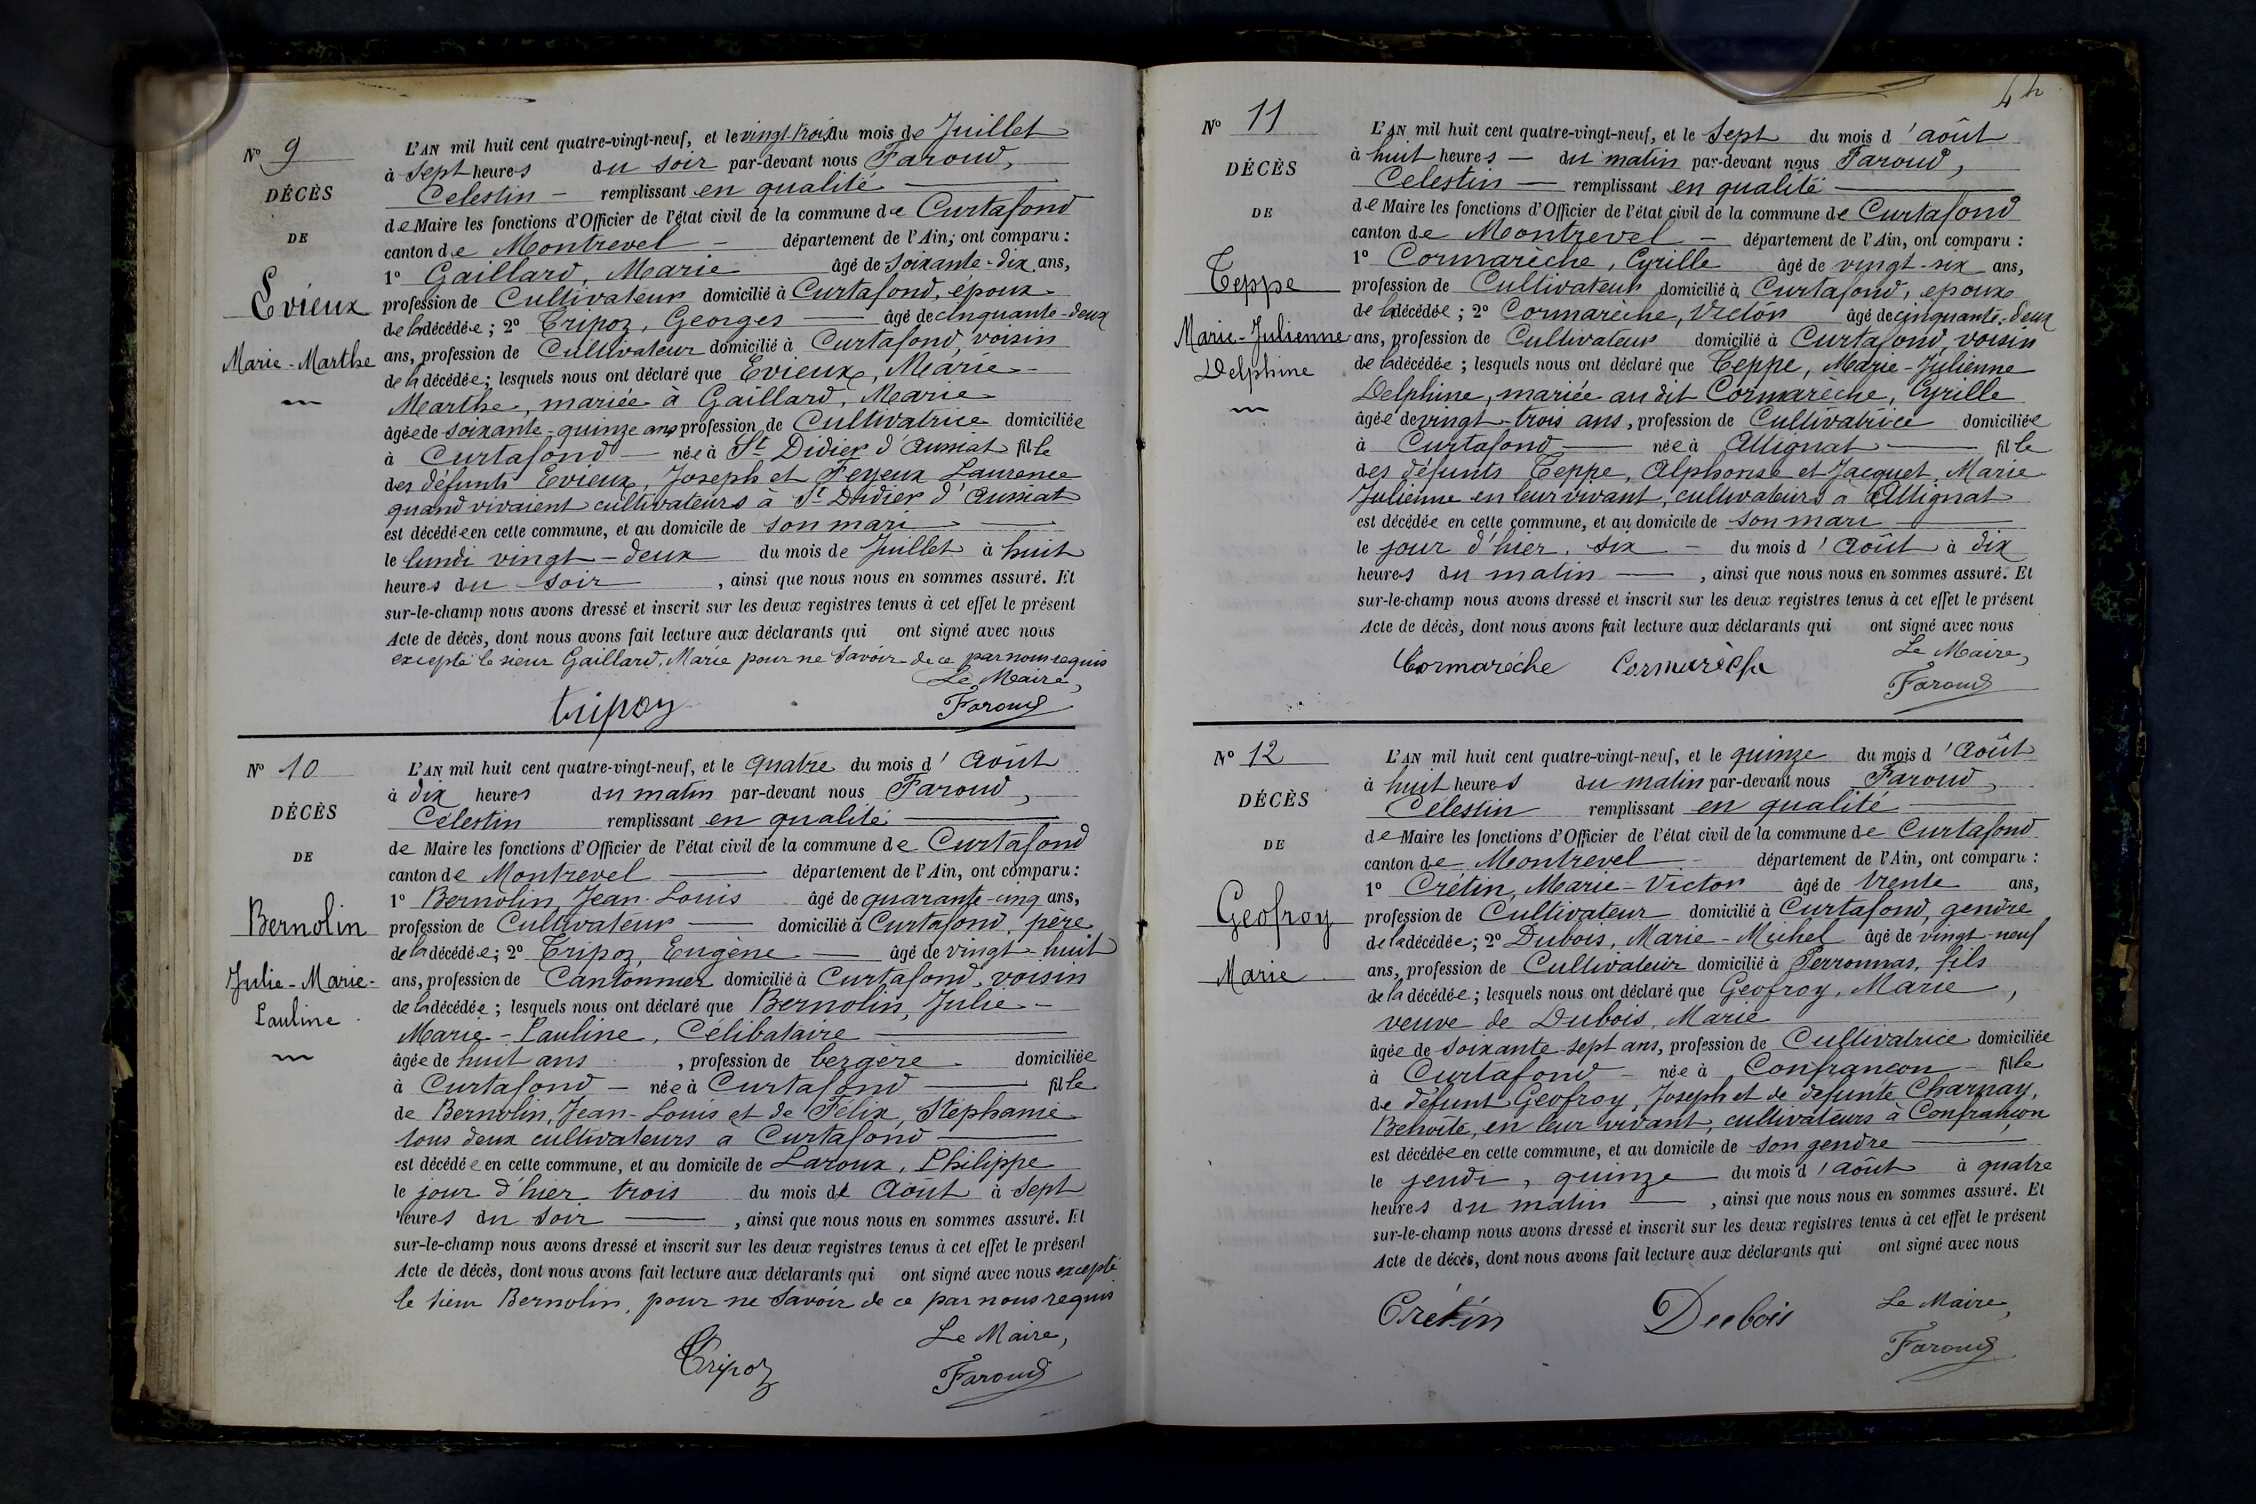 Nº 9
DÉCÈS
DE
Evieux
Marie-Marthe
L'AN mil huit cent quatre-vingt-neuf, et le vingt-trois du mois de Juillet
à sept heures du soir par-devant nous Faroud,
Célestin — remplissant en qualité
de Maire les fonctions d'Officier de l'état civil de la commune de Curtafond
canton de Montrevel — département de l'Ain, ont comparu :
1º Gaillard, Marie âgé de soixante-dix ans,
profession de Cultivateur domicilié à Curtafond, époux
de la décédée ; 2º Tripoz, Georges — âgé de cinquante-deux
ans, profession de Cultivateur domicilié à Curtafond, voisin
de la décédée ; lesquels nous ont déclaré que Evieux, Marie-
Marthe, mariée à Gaillard, Marie
âgée de soixante-quinze ans profession de Cultivatrice domiciliée
à Curtafond — née à St Didier d'Aussiat fille
des défunts Evieux, Joseph et Feyeux Laurence
quand vivaient cultivateurs à St Didier d'Aussiat
est décédée en cette commune, et au domicile de son mari
le lundi vingt-deux du mois de Juillet à huit
heures du soir , ainsi que nous nous en sommes assuré. Et
sur-le-champ nous avons dressé et inscrit sur les deux registres tenus à cet effet le présent
Acte de décès, dont nous avons fait lecture aux déclarants qui ont signé avec nous
excepté le sieur Gaillard, Marie pour ne savoir de ce par nous requis
Le Maire,
tripoz Faroud
Nº 10
DÉCÈS
DE
Bernolin
Julie-Marie-
Pauline
L'AN mil huit cent quatre-vingt-neuf, et le quatre du mois d'Août
à dix heures du matin par-devant nous Faroud,
Célestin remplissant en qualité
de Maire les fonctions d'Officier de l'état civil de la commune de Curtafond
canton de Montrevel — département de l'Ain, ont comparu :
1º Bernolin, Jean-Louis âgé de quarante-cinq ans,
profession de Cultivateur — domicilié à Curtafond, père
de la décédée ; 2º Tripoz, Eugène — âgé de vingt-huit
ans, profession de Cantonnier domicilié à Curtafond, voisin
de la décédée ; lesquels nous ont déclaré que Bernolin, Julie-
Marie-Pauline, Célibataire
âgée de huit ans , profession de bergère domiciliée
à Curtafond — née à Curtafond — fille
de Bernolin, Jean-Louis et de Félix, Stéphanie
tous deux cultivateurs à Curtafond
est décédée en cette commune, et au domicile de Laroux, Philippe
le jour d'hier trois du mois de Août à sept
heures du soir — , ainsi que nous nous en sommes assuré. Et
sur-le-champ nous avons dressé et inscrit sur les deux registres tenus à cet effet le présent
Acte de décès, dont nous avons fait lecture aux déclarants qui ont signé avec nous excepté
le sieur Bernolin, pour ne savoir de ce par nous requis
Le Maire,
Tripoz Faroud
Nº 11
DÉCÈS
DE
Teppe
Marie-Julienne
Delphine
L'AN mil huit cent quatre-vingt-neuf, et le sept du mois d'août
à huit heures — du matin par-devant nous Faroud,
Célestin — remplissant en qualité
de Maire les fonctions d'Officier de l'état civil de la commune de Curtafond
canton de Montrevel — département de l'Ain, ont comparu :
1º Cormarèche, Cyrille âgé de vingt-six ans,
profession de Cultivateur domicilié à Curtafond, époux
de la décédée ; 2º Cormarèche, Victor âgé de cinquante-deux
ans, profession de Cultivateur domicilié à Curtafond, voisin
de la décédée ; lesquels nous ont déclaré que Teppe, Marie-Julienne
Delphine, mariée audit Cormarèche, Cyrille
âgée de vingt-trois ans, profession de Cultivatrice domiciliée
à Curtafond — née à Attignat — fille
des défunts Teppe, Alphonse et Jacquet, Marie
Julienne en leur vivant, cultivateurs à Attignat
est décédée en cette commune, et au domicile de son mari
le jour d'hier, six — du mois d'Août à dix
heures du matin — , ainsi que nous nous en sommes assuré. Et
sur-le-champ nous avons dressé et inscrit sur les deux registres tenus à cet effet le présent
Acte de décès, dont nous avons fait lecture aux déclarants qui ont signé avec nous
Le Maire,
Cormarèche Cormarèche Faroud
Nº 12
DÉCÈS
DE
Geofroy
Marie
L'AN mil huit cent quatre-vingt-neuf, et le quinze du mois d'Août
à huit heures du matin par-devant nous Faroud,
Célestin remplissant en qualité
de Maire les fonctions d'Officier de l'état civil de la commune de Curtafond
canton de Montrevel — département de l'Ain, ont comparu :
1º Crétin, Marie-Victor âgé de trente ans,
profession de Cultivateur domicilié à Curtafond, gendre
de la décédée ; 2º Dubois, Marie-Michel âgé de vingt-neuf
ans, profession de Cultivateur domicilié à Perronnas, fils
de la décédée ; lesquels nous ont déclaré que Geofroy, Marie,
veuve de Dubois, Marie
âgée de soixante-sept ans, profession de Cultivatrice domiciliée
à Curtafond — née à Confrançon — fille
de défunt Geofroy, Joseph et de défunte Charnay,
Benoîte, en leur vivant, cultivateurs à Confrançon
est décédée en cette commune, et au domicile de son gendre
le jeudi, quinze du mois d'Août à quatre
heures du matin — , ainsi que nous nous en sommes assuré. Et
sur-le-champ nous avons dressé et inscrit sur les deux registres tenus à cet effet le présent
Acte de décès, dont nous avons fait lecture aux déclarants qui ont signé avec nous
Le Maire,
Crétin Dubois Faroud